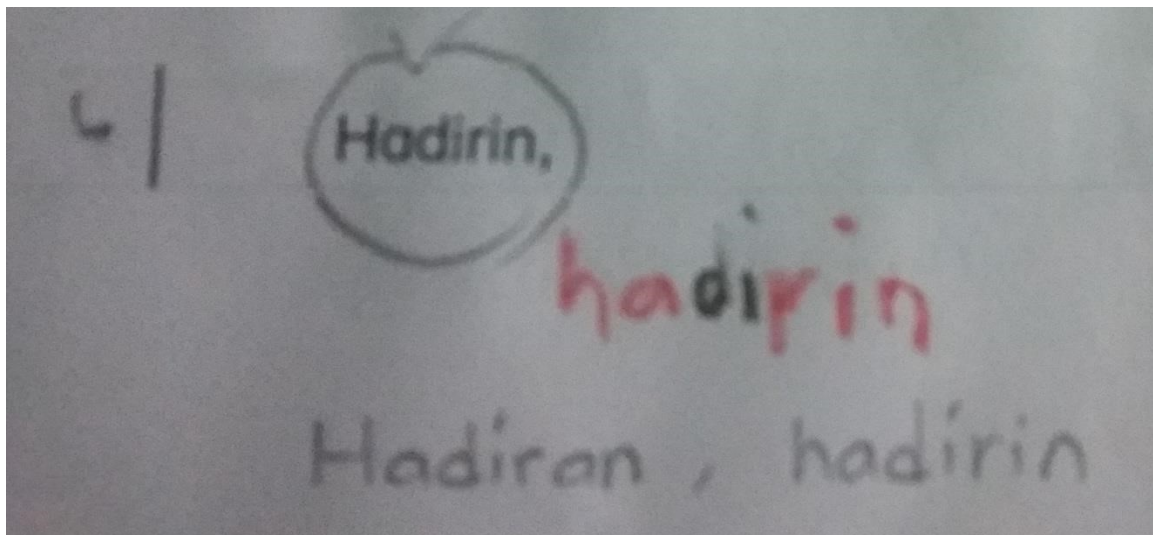 4)
Hadirin,
hadirin
Hadiran, hadirin